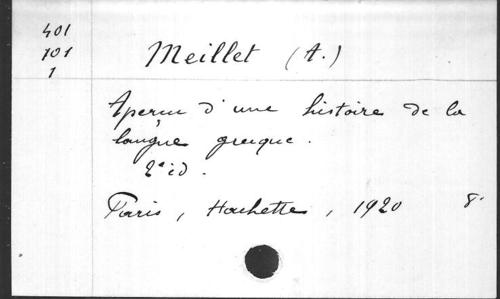 401
101
1
Meillet (A.)
Aperçu d'une histoire de la
langue grecque.
2e éd.
Paris, Hachette, 1920 8°